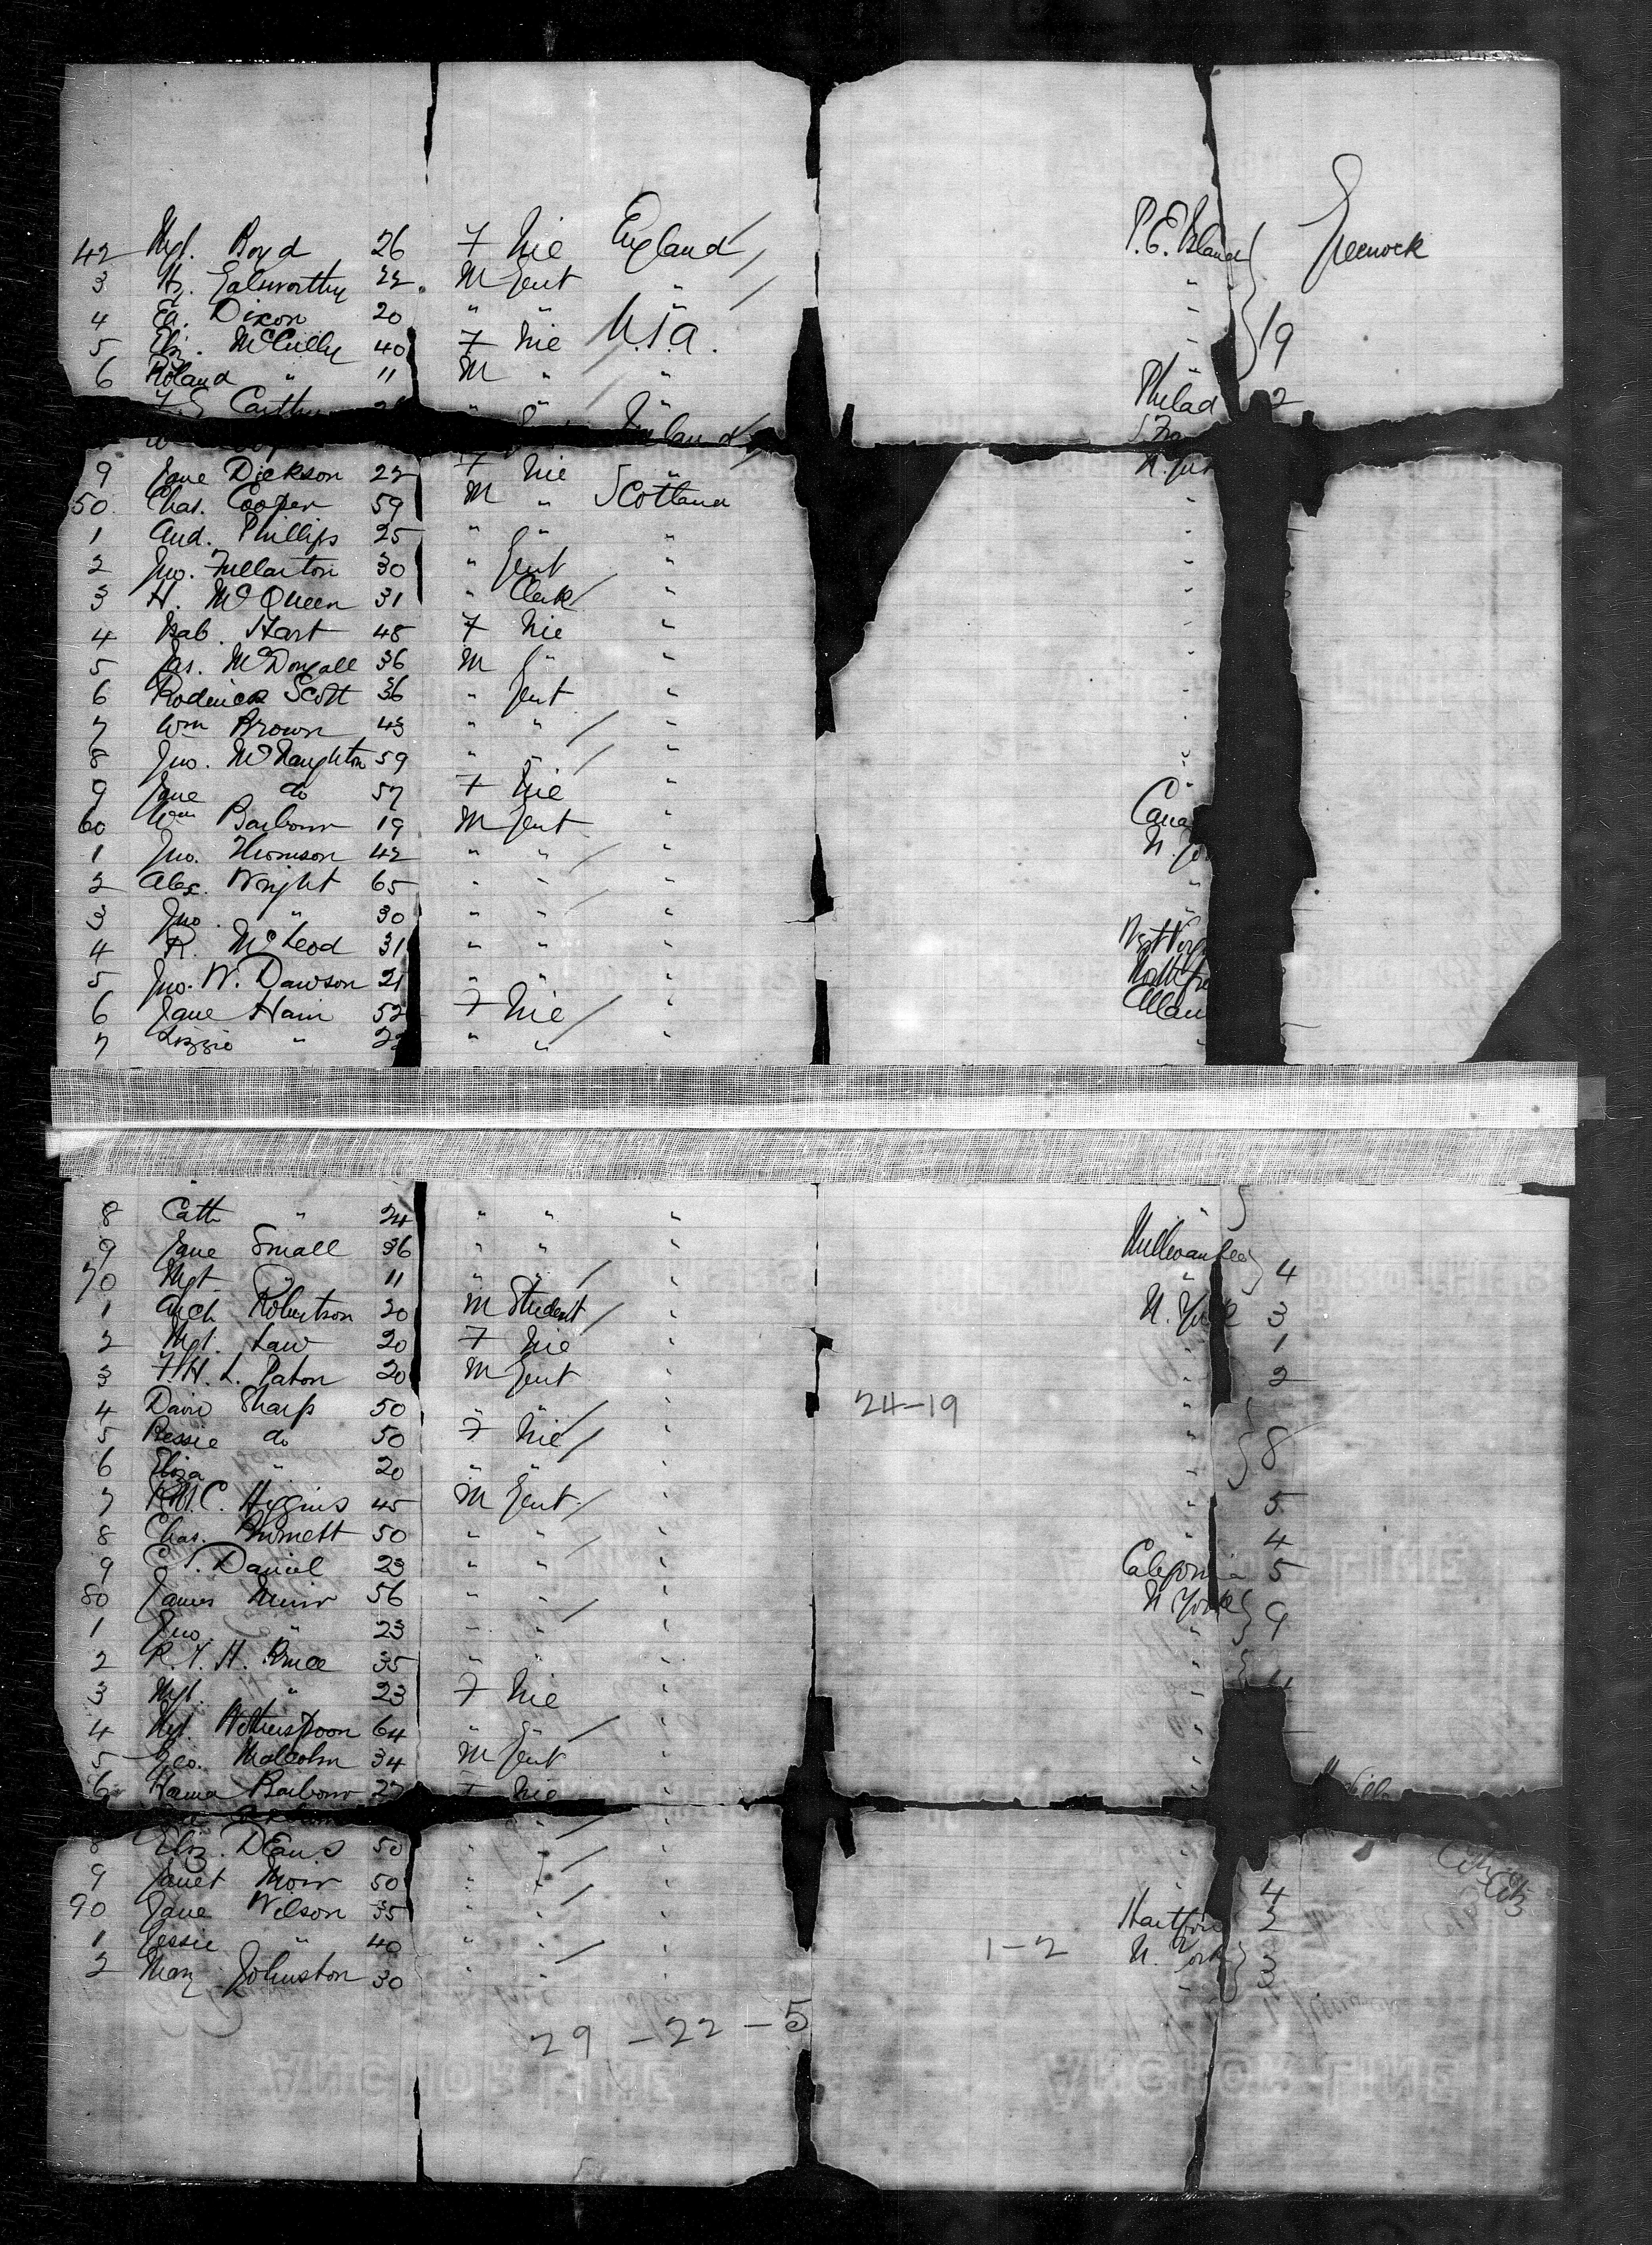 42 Mgt. Boyd 26 F Nie England P.E. Island Greenock
3 H. Galsworthy 22 M Gent " "
4 Ed. Dixon 20 " " " " 19
5 Eliz. McCully 40 F Nie U.S.a. "
6 Roland " 11 M " " "
" " Philad 2
Ireland
9 Jane Dickson 22 F Nie "
50. Chas. Cooper 59 M " Scotland "
1 And. Phillips 25 " " " "
2 Jno. Fullarton 30 " Gent " "
3 H. McQueen 31 " Clerk " "
4 Isab. Hart 48 F Nie " "
5 Jas. McDougall 36 M " " "
6 Roderick Scott 36 " Gent " "
7 Wm Brown 43 " " " "
8 Jno. McNaughton 59 " " " "
9 Jane do 57 F Nie "
60 Wm Barbour 19 M Gent " Cana
1 Jno. Thomson 42 " " " N. Yo
2 Alex. Wright 65 " " " "
3 Jno. " 30 " " " "
4 R. McLeod 31 " " "
5 Jno. W. Dawson 21 " " "
6 Jane Hain 52 F Nie "
7 Lizzie " " " " "
8 Cath " 24 " " " "
9 Jane Small 36 " " " Millwaukee 4
70 Mgt. " 11 " " " "
1 Arch Robertson 20 M Student " N. York 3
2 Mgt. Law 20 F Nie " " 1
3 F.H. L. Paton 20 M Gent " " 2
4 David Sharp 50 " " " 24-19 "
5 Bessie do 50 F Nie " " 8
6 Eliza " 20 " " " "
7 R.M.C. Higgins 45 M Gent " " 5
8 Chas. 50 " " " " 4
9 C. Daniel 23 " " " California 5
80 James Muir 56 " " " N York 9
1 Jno. " 23 " " " "
2 R. T. H. Bruce 35 " " " "
3 Mgt. " 23 F Nie " " 4
4 Mgt. Wotherspoon 64 " " " "
5 Geo. Malcolm 34 M Gent " "
6 Barbour F Nie "
8 Eliz. Deans 50 " " "
9 Janet Moir 50 " " " " 4
90 Jane Wilson 35 " " " Hartford
1 Jessie " 40 " " " 1-2 N. York 3
2 Mary Johnston 30 " " " " 3
29 -22 -5
ANCHOR LINE ANCHOR LINE